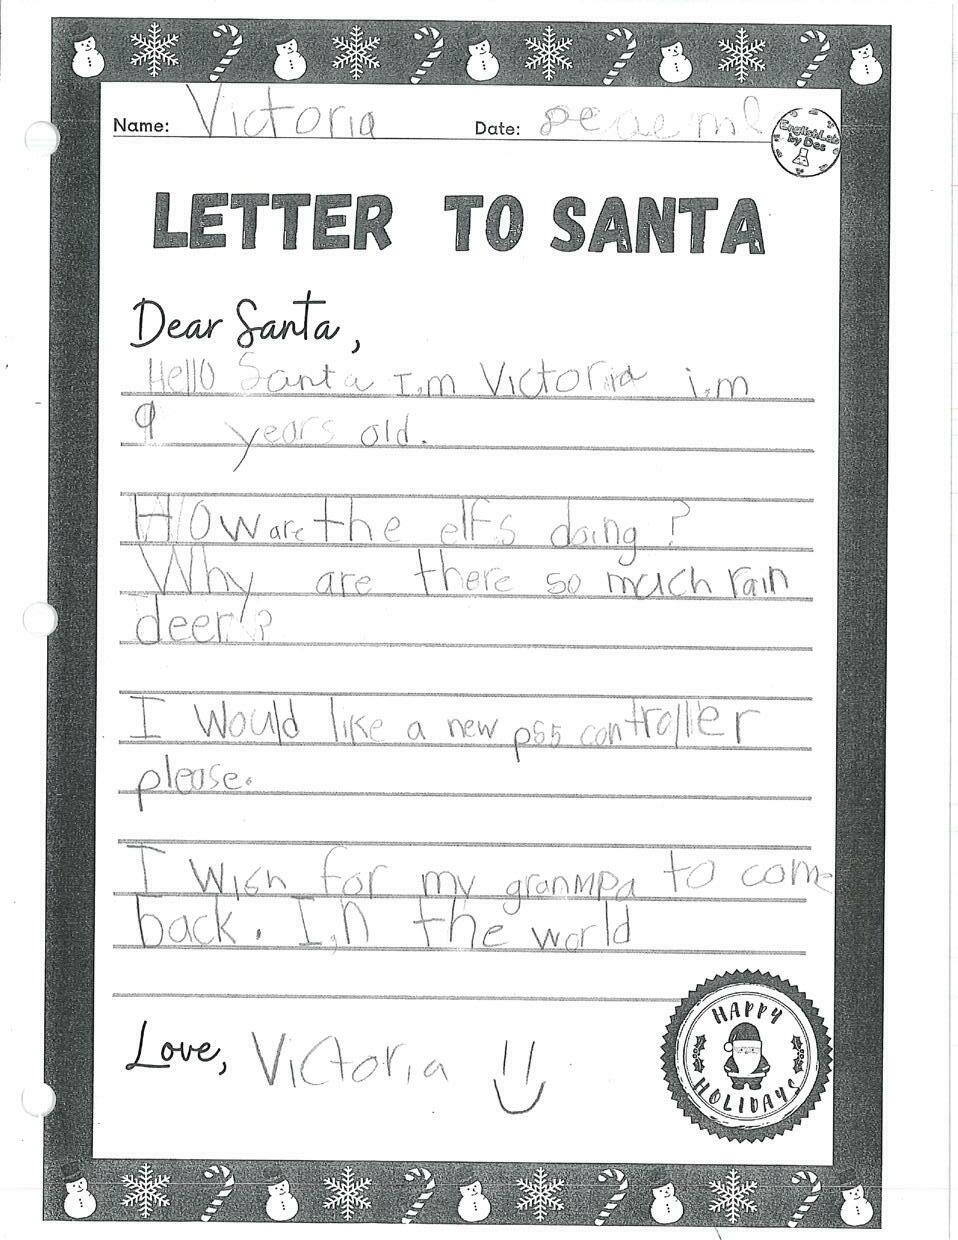 Name: Victoria Date:
EnglishLab
by Des
LETTER TO SANTA
Dear Santa,
Hello Santa I,m Victoria i,m
9 years old.
How are the elfs doing?
Why are there so much rain
deer?
I would like a new ps5 controller
please.
I wish for my granmpa to come
back. I,n the world
HAPPY
HOLIDAYS
Love, Victoria